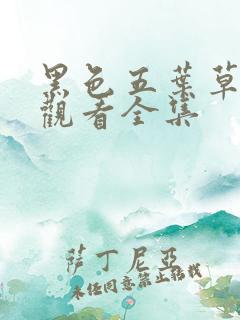 黑色五葉草
觀看全集
薩丁尼亞
未經同意禁止轉載